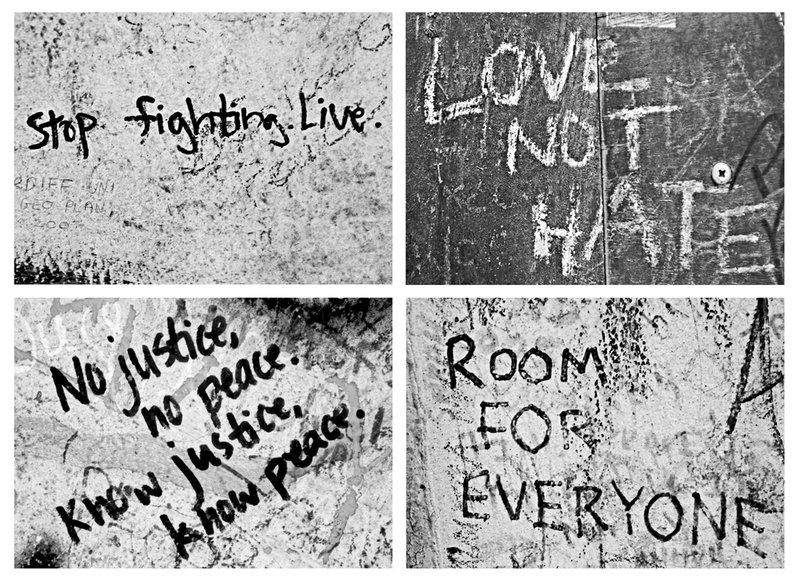 Stop fighting. Live.
LOVE
NOT
HATE
No justice,
no peace.
Know justice,
know peace.
ROOM
FOR
EVERYONE